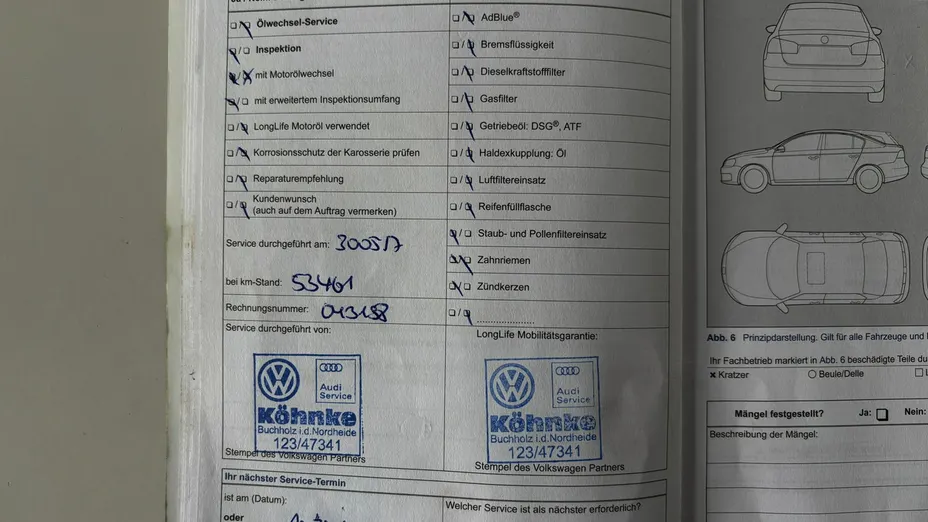 Ölwechsel-Service
Inspektion
mit Motorölwechsel
mit erweitertem Inspektionsumfang
LongLife Motoröl verwendet
Korrosionsschutz der Karosserie prüfen
Reparaturempfehlung
Kundenwunsch
(auch auf dem Auftrag vermerken)
Service durchgeführt am: 300517
bei km-Stand: 53461
Rechnungsnummer:
Service durchgeführt von:
Audi
Service
Köhnke
Buchholz i.d.Nordheide
123/47341
Stempel des Volkswagen Partners
AdBlue®
Bremsflüssigkeit
Dieselkraftstofffilter
Gasfilter
Getriebeöl: DSG®, ATF
Haldexkupplung: Öl
Luftfiltereinsatz
Reifenfüllflasche
Staub- und Pollenfiltereinsatz
Zahnriemen
Zündkerzen
LongLife Mobilitätsgarantie:
Audi
Service
Köhnke
Buchholz i.d.Nordheide
123/47341
Stempel des Volkswagen Partners
Ihr nächster Service-Termin
ist am (Datum):
oder
Welcher Service ist als nächster erforderlich?
Abb. 6 Prinzipdarstellung. Gilt für alle Fahrzeuge und
Ihr Fachbetrieb markiert in Abb. 6 beschädigte Teile
Kratzer Beule/Delle
Mängel festgestellt? Ja: Nein:
Beschreibung der Mängel: